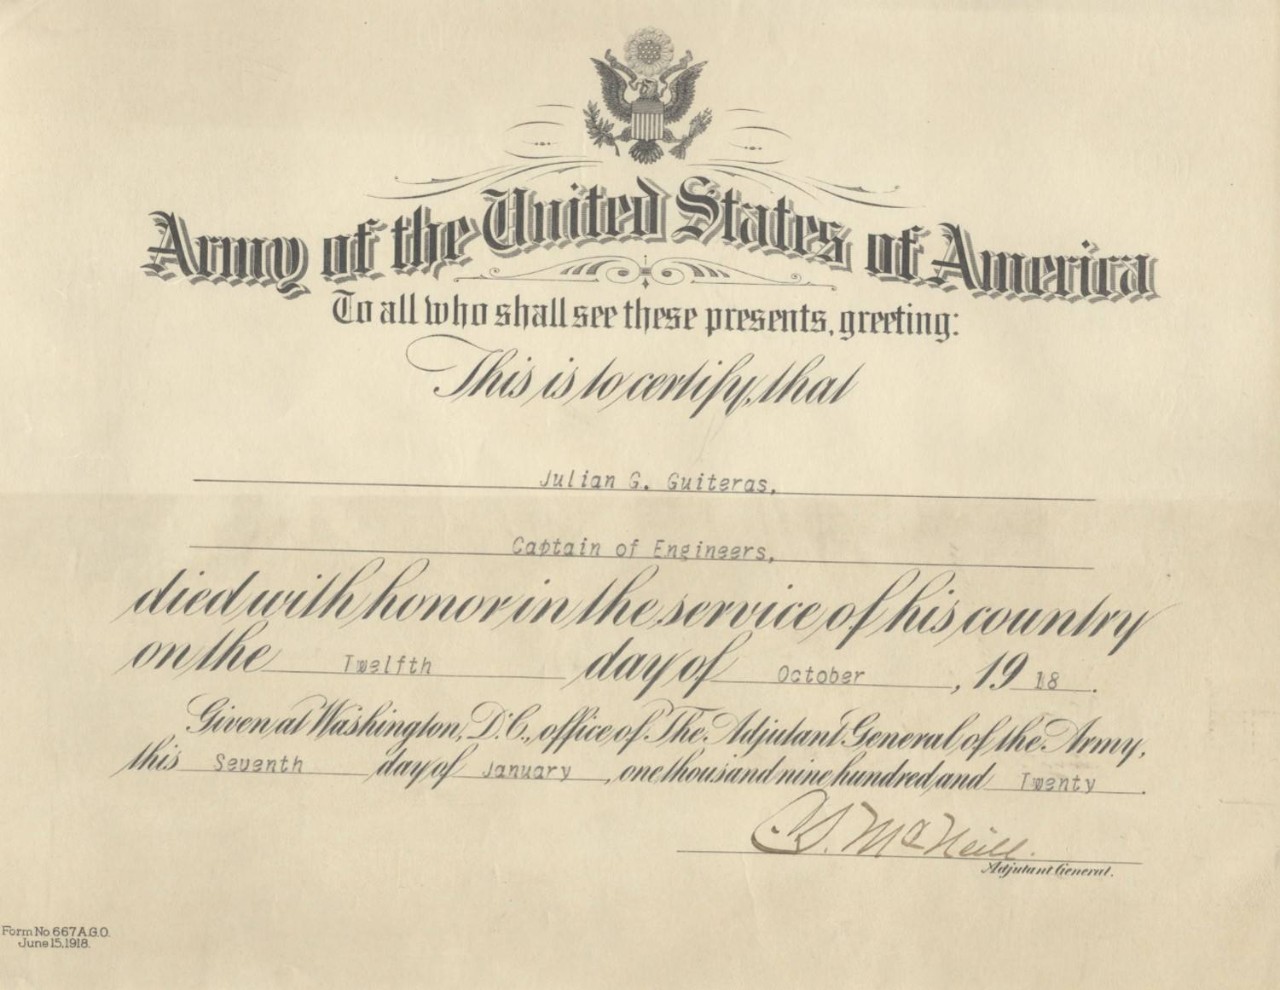 Army of the United States of America
To all who shall see these presents, greeting:
This is to certify, that
Julian G. Guiteras,
Captain of Engineers,
died with honor in the service of his country
on the Twelfth day of October, 1918.
Given at Washington, D.C., office of The Adjutant General of the Army,
this Seventh day of January, one thousand nine hundred and Twenty.
McNeill.
Adjutant General.
Form No. 667 A.G.O.
June 15, 1918.